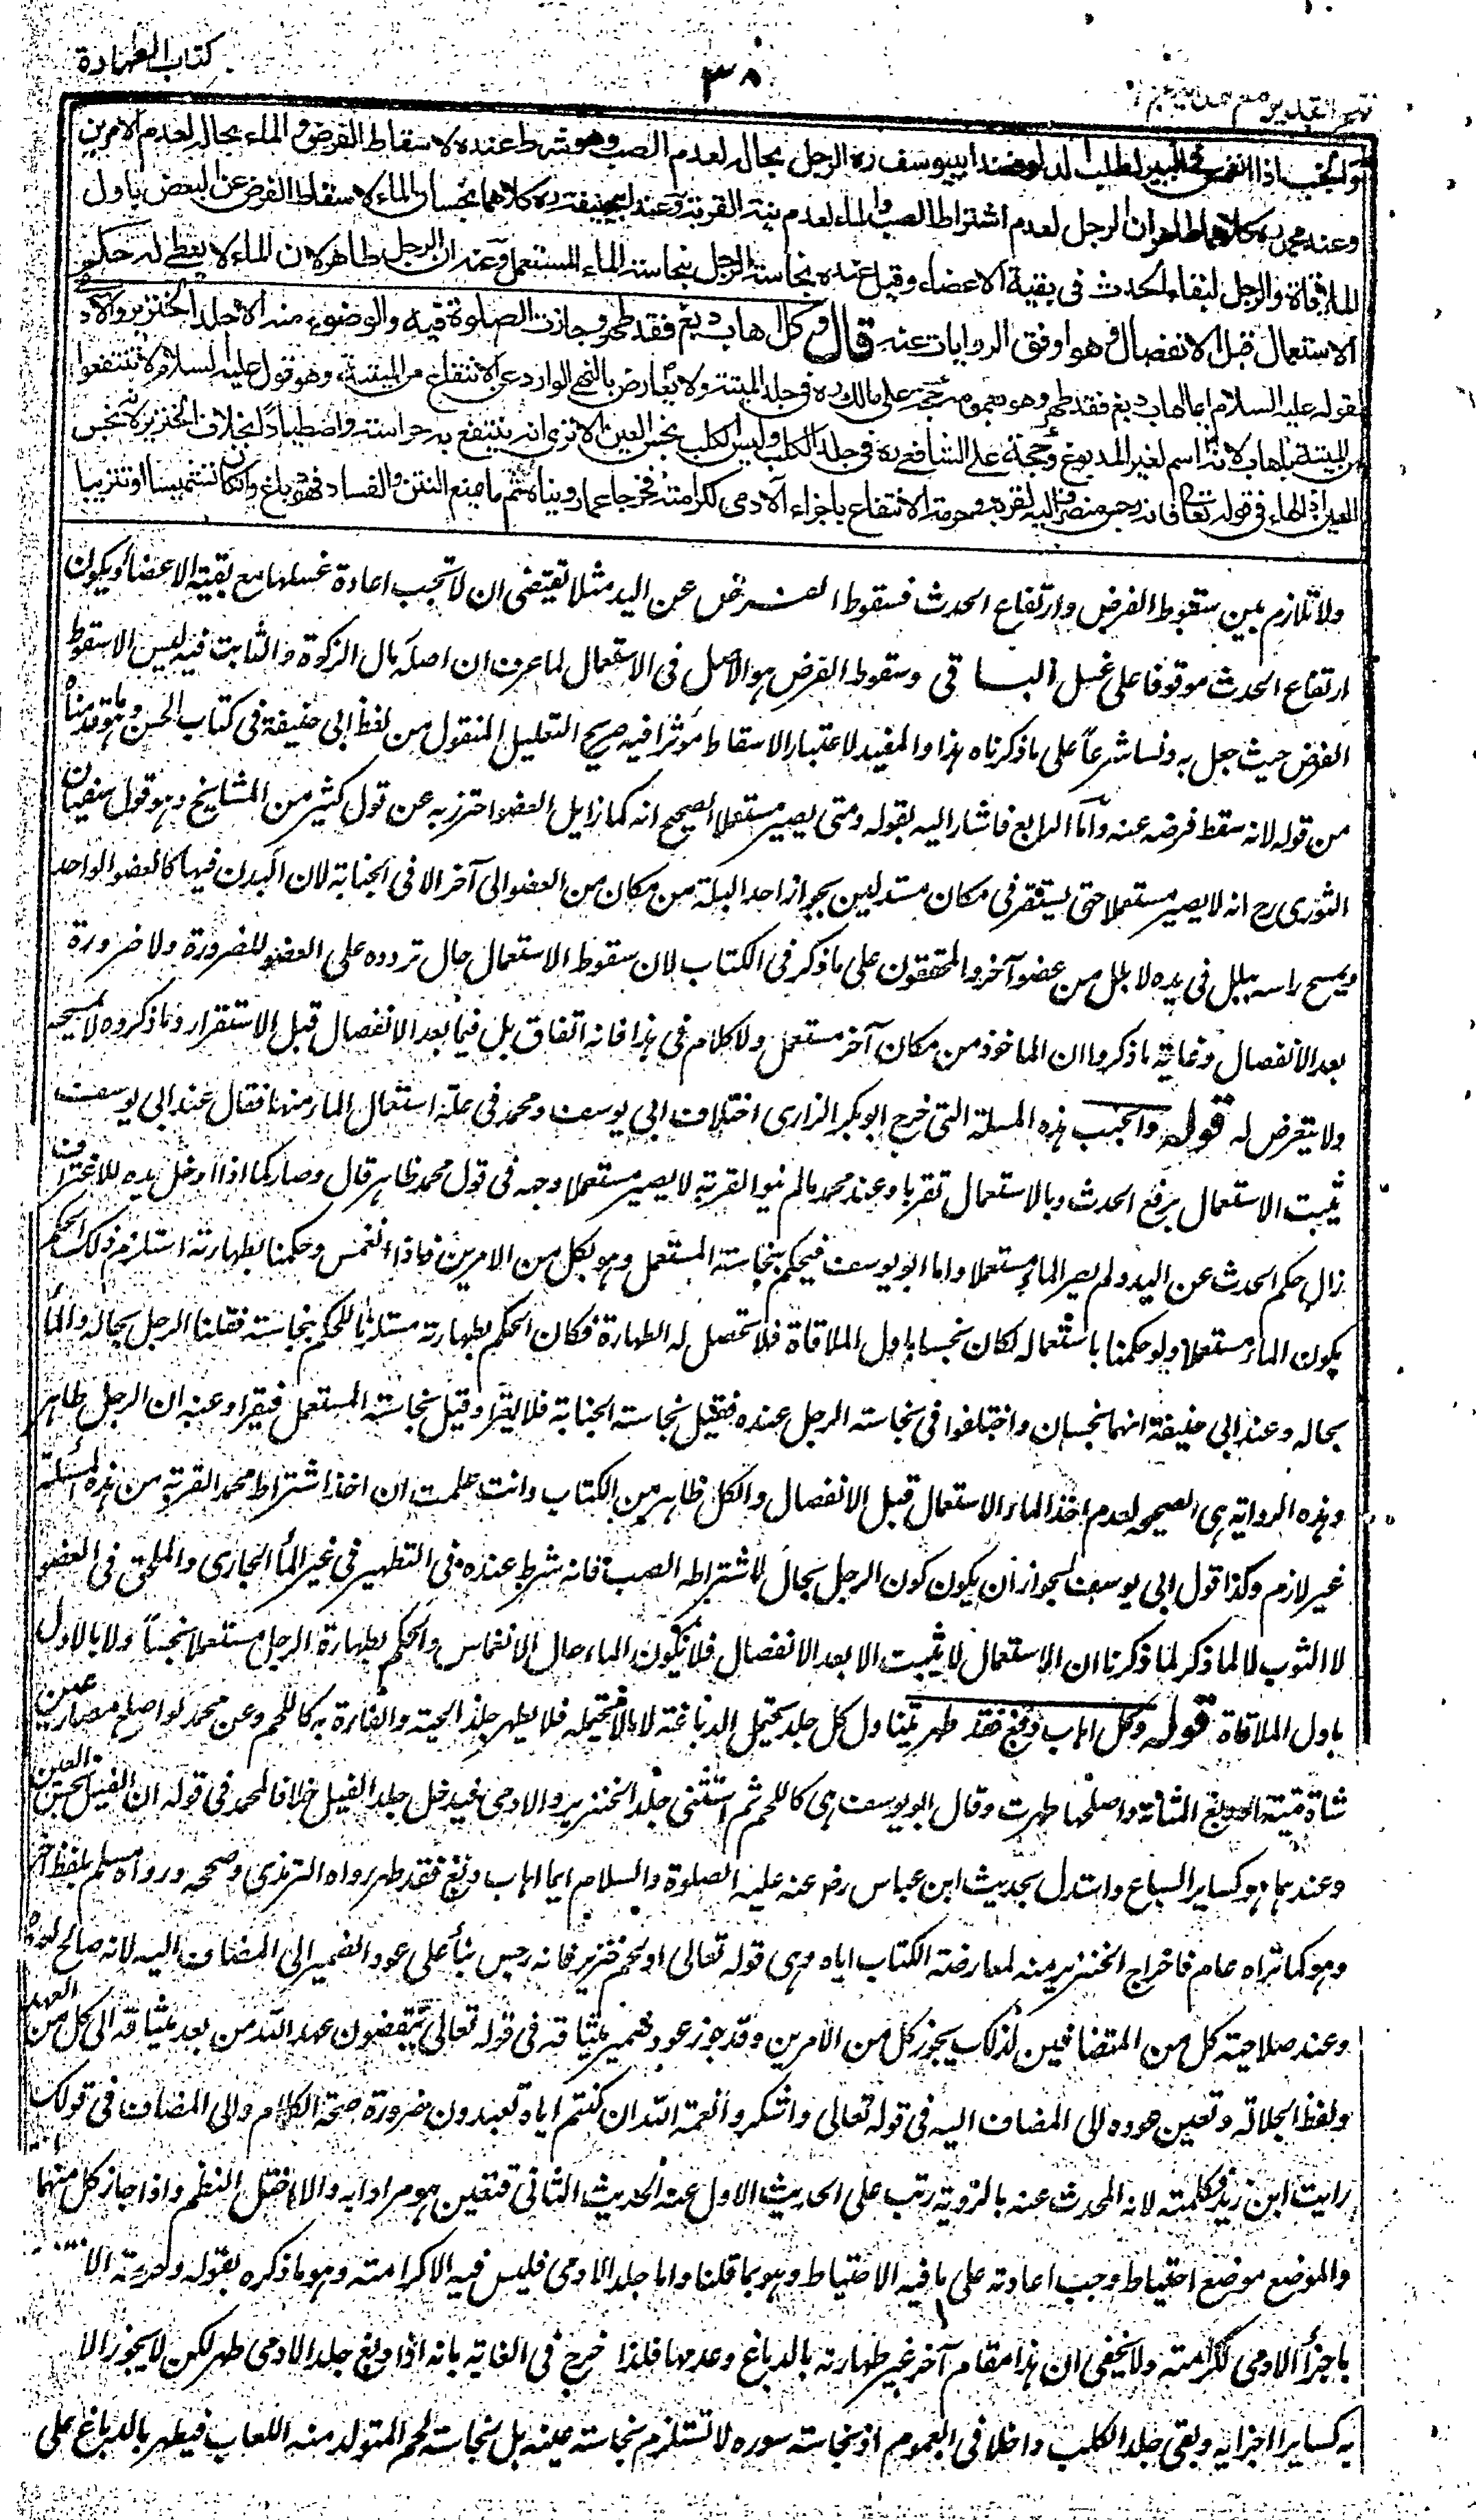 كتاب الطهارة
٣٨
فتح القدير مع هداية
والجنب اذا انغمس فى البير لطلب الدلو فعند ابييوسف ره الرجل بحاله لعدم الصب وهو شرط عنده لاسقاط الفرض والماء بحاله لعدم الامرين
وعند محمد ره كلاهما طاهران الرجل لعدم اشتراط الصب والماء لعدم نية القربة وعند ابيحنيفة ره كلاهما نجسان الماء لاسقاط الفرض عن البعض باول
الملاقاة والرجل لبقاء الحدث فى بقية الاعضاء وقيل عنده نجاسة الرجل بنجاسة الماء المستعمل وعنه ان الرجل طاهر لان الماء لا يعطى له حكم
الاستعمال قبل الانفصال وهو اوفق الروايات عنه قال وكل اهاب دبغ فقد طهر وجازت الصلوة فيه والوضوء منه الا جلد الخنزير والآدمي
لقوله عليه السلام ايما اهاب دبغ فقد طهر وهو بعمومه حجة على مالك ره فى جلد الميتة ولا يعارض بالنهى الوارد عن الانتفاع من الميتة وهو قوله عليه السلام لا تنتفعوا
من الميتة باهاب لانه اسم لغير المدبوغ وحجة على الشافعى ره فى جلد الكلب وليس الكلب نجس العين الا ترى انه ينتفع به حراسة واصطيادا بخلاف الخنزير لانه نجس
العين اذ الهاء فى قوله تعالى فانه رجس منصرف اليه لقربه وحرمة الانتفاع باجزاء الآدمى لكرامته فخرجا عما رويناه ثم ما يمنع النتن والفساد فهو دباغ وان كان تشميسا او تتريبا
ولا تلازم بين سقوط الفرض وارتفاع الحدث فسقوط الفرض عن اليد مثلا تقتضى ان لا تجب اعادة غسلها مع بقية الاعضاء ويكون
ارتفاع الحدث موقوفا على غسل الباقى وسقوط الفرض هو الاصل فى الاستعمال لما عرف ان اصله مال الزكوة والثابت فيه ليس الا سقوط
الفرض حيث جعل به دنسا شرعاً على ما ذكرناه هذا والمفيد لاعتبار الاسقاط مؤثرا فيه صريح التعليل المنقول من لفظ ابى حنيفة فى كتاب الحسن وما قدمناه
من قوله لانه سقط فرضه عنه وأما الرابع فاشار اليه بقوله ومتى يصير مستعملا الصحيح انه كما زايل العضو احترز به عن قول كثير من المشايخ وهو قول سفيان
الثورى رح انه لا يصير مستعملا حتى يستقر فى مكان مستدلين بجواز اخذ البلة من مكان من العضو الى آخر الا فى الجنابة لان البدن فيها كالعضو الواحد
ويمسح راسه ببلل فى يده لا بلل من عضو آخر والمحققون على ما ذكر فى الكتاب لان سقوط الاستعمال حال تردده على العضو للضرورة ولا ضرورة
بعد الانفصال وغاية ما ذكروا ان الماخوذ من مكان آخر مستعمل ولا كلام فى هذا فانه اتفاق بل فيما بعد الانفصال قبل الاستقرار وما ذكروه لا يمسه
ولا يتعرض له قوله والجنب هذه المسئلة التى خرج ابو بكر الرازى اختلاف ابى يوسف ومحمد فى علة استعمال الماء منها فقال عند ابى يوسف
يثبت الاستعمال برفع الحدث وبالاستعمال تقربا وعند محمد ما لم ينو القربة لا يصير مستعملا وجهه فى قول محمد ظاهر قال وصار كما اذا ادخل يده للاغتراف
زال حكم الحدث عن اليد ولم يصر الماء مستعملا واما ابو يوسف فيحكم بنجاسة المستعمل وهو بكل من الامرين فاذا انغمس وحكمنا بطهارته استلزم ذلك الحكم
بكون الماء مستعملا ولو حكمنا باستعماله لكان نجسا باول الملاقاة فلا تحصل له الطهارة فكان الحكم بطهارته مستلزما للحكم بنجاسته فقلنا الرجل بحاله والماء
بحاله وعند ابى حنيفة انهما نجسان واختلفوا فى نجاسة الرجل عنده فقيل نجاسة الجنابة فلا يقرأ وقيل نجاسة المستعمل فيقرا وعنه ان الرجل طاهر
وهذه الرواية هى الصحيحة لعدم اخذ الماء الاستعمال قبل الانفصال والكل ظاهر من الكتاب وانت علمت ان اخذ اشتراط محمد القربة من هذه المسئلة
غير لازم وكذا قول ابى يوسف لجواز ان يكون كون الرجل بحاله لاشتراطه الصب فانه شرط عنده فى التطهير فى غير الماء الجارى والملحق فى العضو
لا الثوب لا لما ذكر لما ذكرنا ان الاستعمال لا يثبت الا بعد الانفصال فلا يكون الماء حال الانغماس والحكم بطهارة الرجل مستعملا نجساً ولا بالاول
باول الملاقاة قوله وكل اهاب دبغ فقد طهر يتناول كل جلد يحتمل الدباغة لا ما لا يحتمله فلا يطهر جلد الحية والفارة به كاللحم وعن محمد لو اصلح مصارين
شاة ميتة او دبغ المثانة واصلحها طهرت وقال ابو يوسف هى كاللحم ثم استثنى جلد الخنزير والادمى فيدخل جلد الفيل خلافا لمحمد فى قوله ان الفيل نجس العين
وعندهما هو كساير السباع واستدل بحديث ابن عباس رض عنه عليه الصلوة والسلام ايما اهاب دبغ فقد طهر رواه الترمذى وصححه ورواه مسلم بلفظ آخر
وهو كما تراه عام فاخراج الخنزير منه لمعارضة الكتاب اياه وهى قوله تعالى او لحم خنزير فانه رجس بناء على عود الضمير الى المضاف اليه لانه صالح لعوده
وعند صلاحية كل من المتضايفين لذلك يجوز كل من الامرين وقد جوز عود ضمير ميثاقه فى قوله تعالى ينقضون عهد الله من بعد ميثاقه الى كل من العهد
ولفظ الجلالة وتعين عوده الى المضاف اليه فى قوله تعالى واشكروا نعمة الله ان كنتم اياه تعبدون ضرورة صحة الكلام والى المضاف فى قولك
رايت ابن زيد فكلمته لانه المحدث عنه بالرؤية رتب على الحديث الاول عنه الحديث الثانى فتعين هو مرادا به والا اختل النظم واذا جاز كل منهما
والموضع موضع احتياط وجب اعادته على ما فيه الاحتياط وهو بما قلنا واما جلد الادمى فليس فيه الا كرامته وهو ما ذكره بقوله وحرمة الا
باجزاء الادمى لكرامته ولا يخفى ان هذا مقام آخر غير طهارته بالدباغ وعدمها فلذا خرج فى الغاية بانه اذا دبغ جلد الادمى طهر لكن لا يجوز الا
به كساير اجزايه وبقى جلد الكلب داخلا فى العموم اذ نجاسة سوره لا تستلزم نجاسة عينه بل نجاسة لحم المتولد منه اللعاب فيطهر بالدباغ على